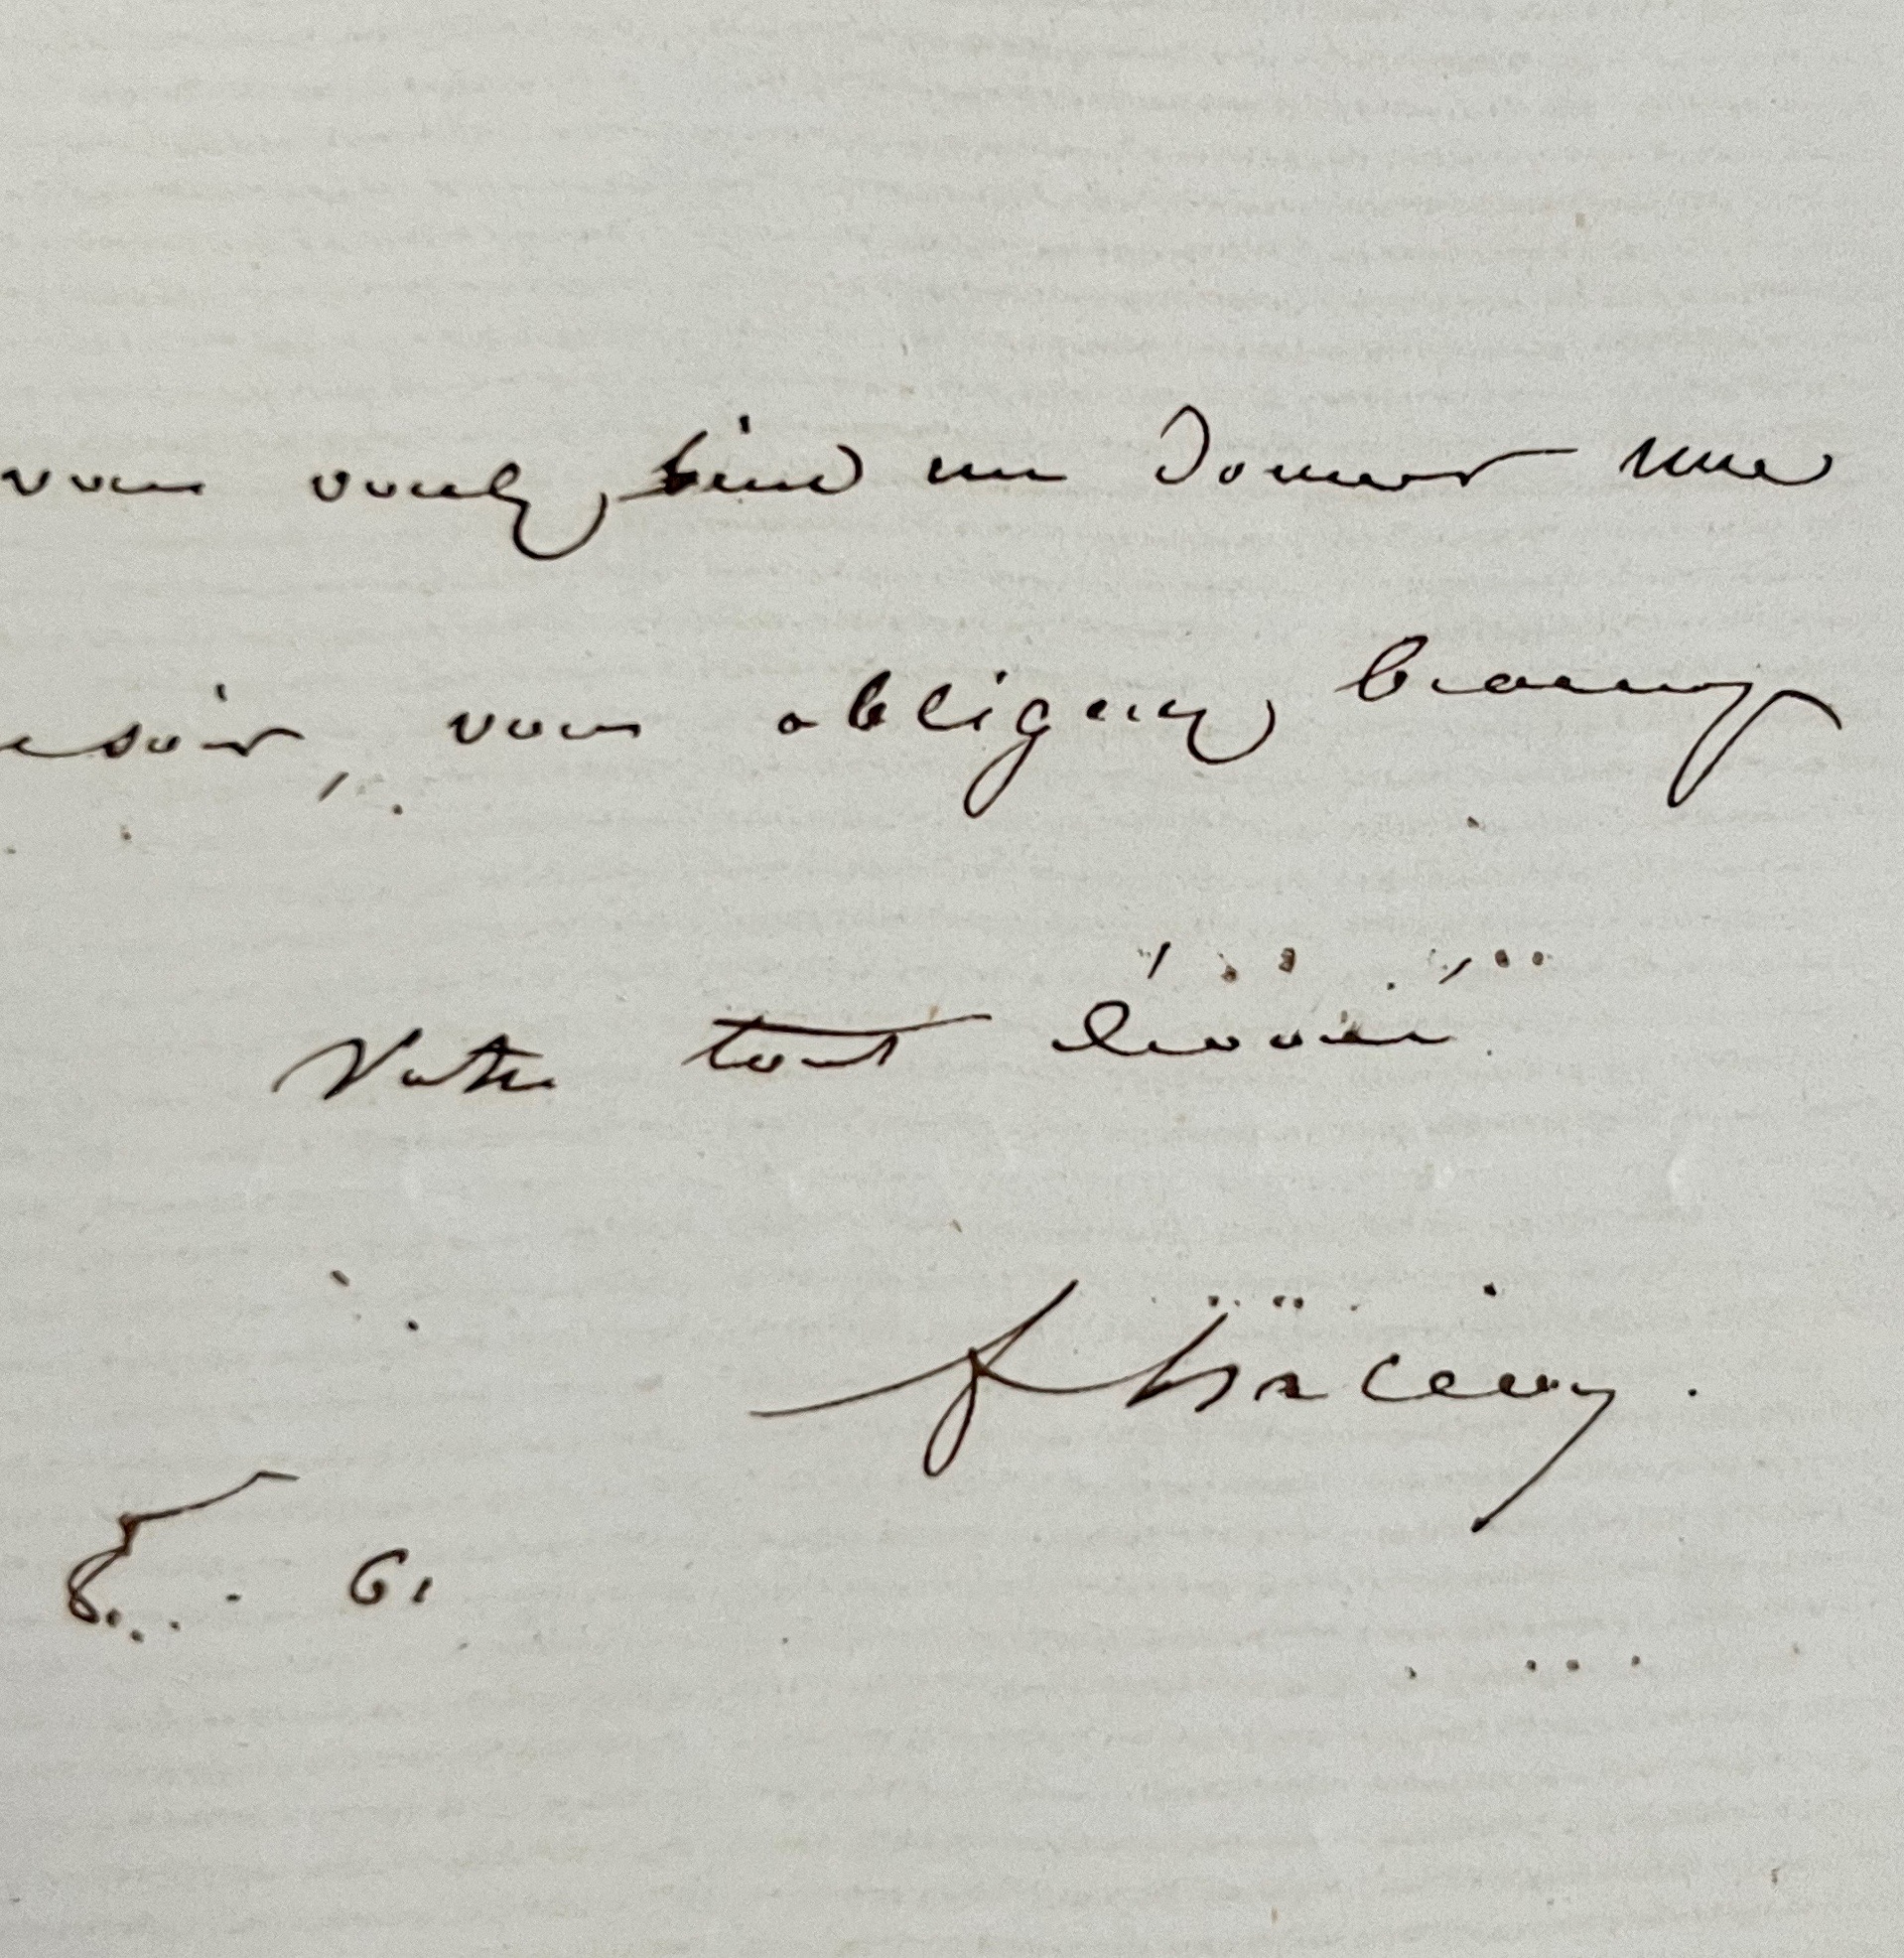 vous voulez bien me donner une
ce soir, vous obligerez beaucoup
Votre tout dévoué
61